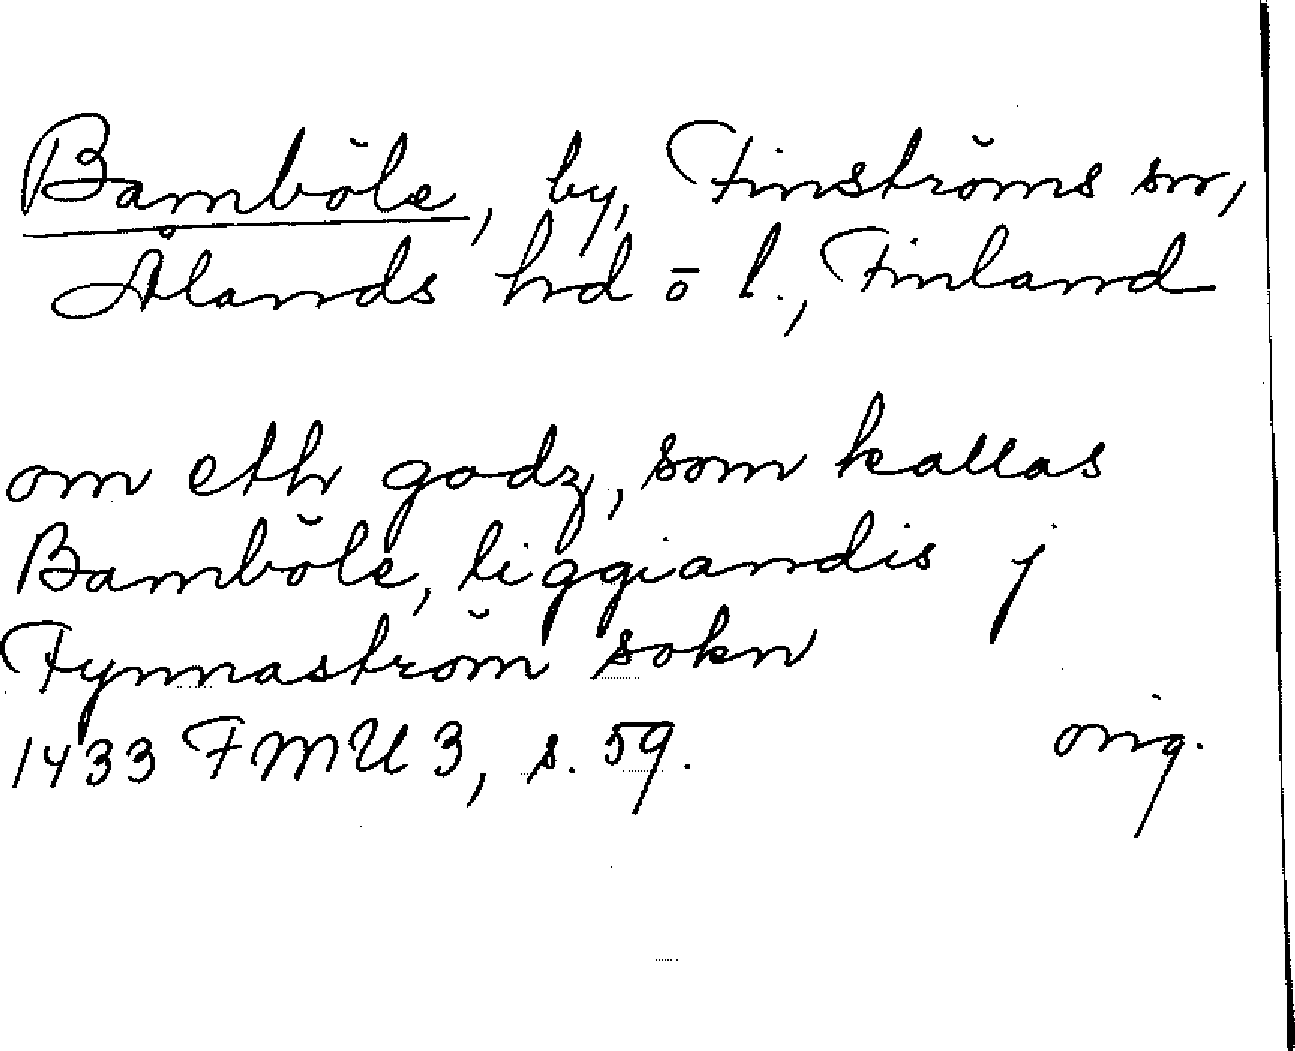 Bamböle, by, Finströms sn,
Ålands hrd o l., Finland
om eth godz, som kallas
Bamböle, liggiandis j
Fynnaström sokn
1433 FMU 3, s. 59. orig.